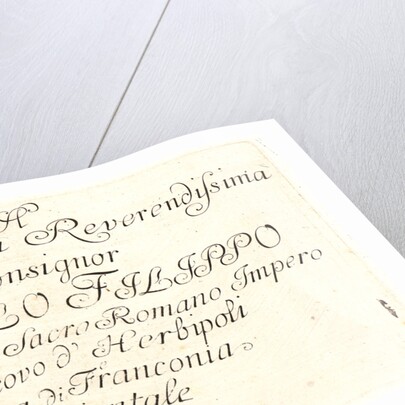 A
Reverendissima
onsignor
LO FILIPPO
Sacro Romano Impero
ovo d' Herbipoli
a di Franconia
entale